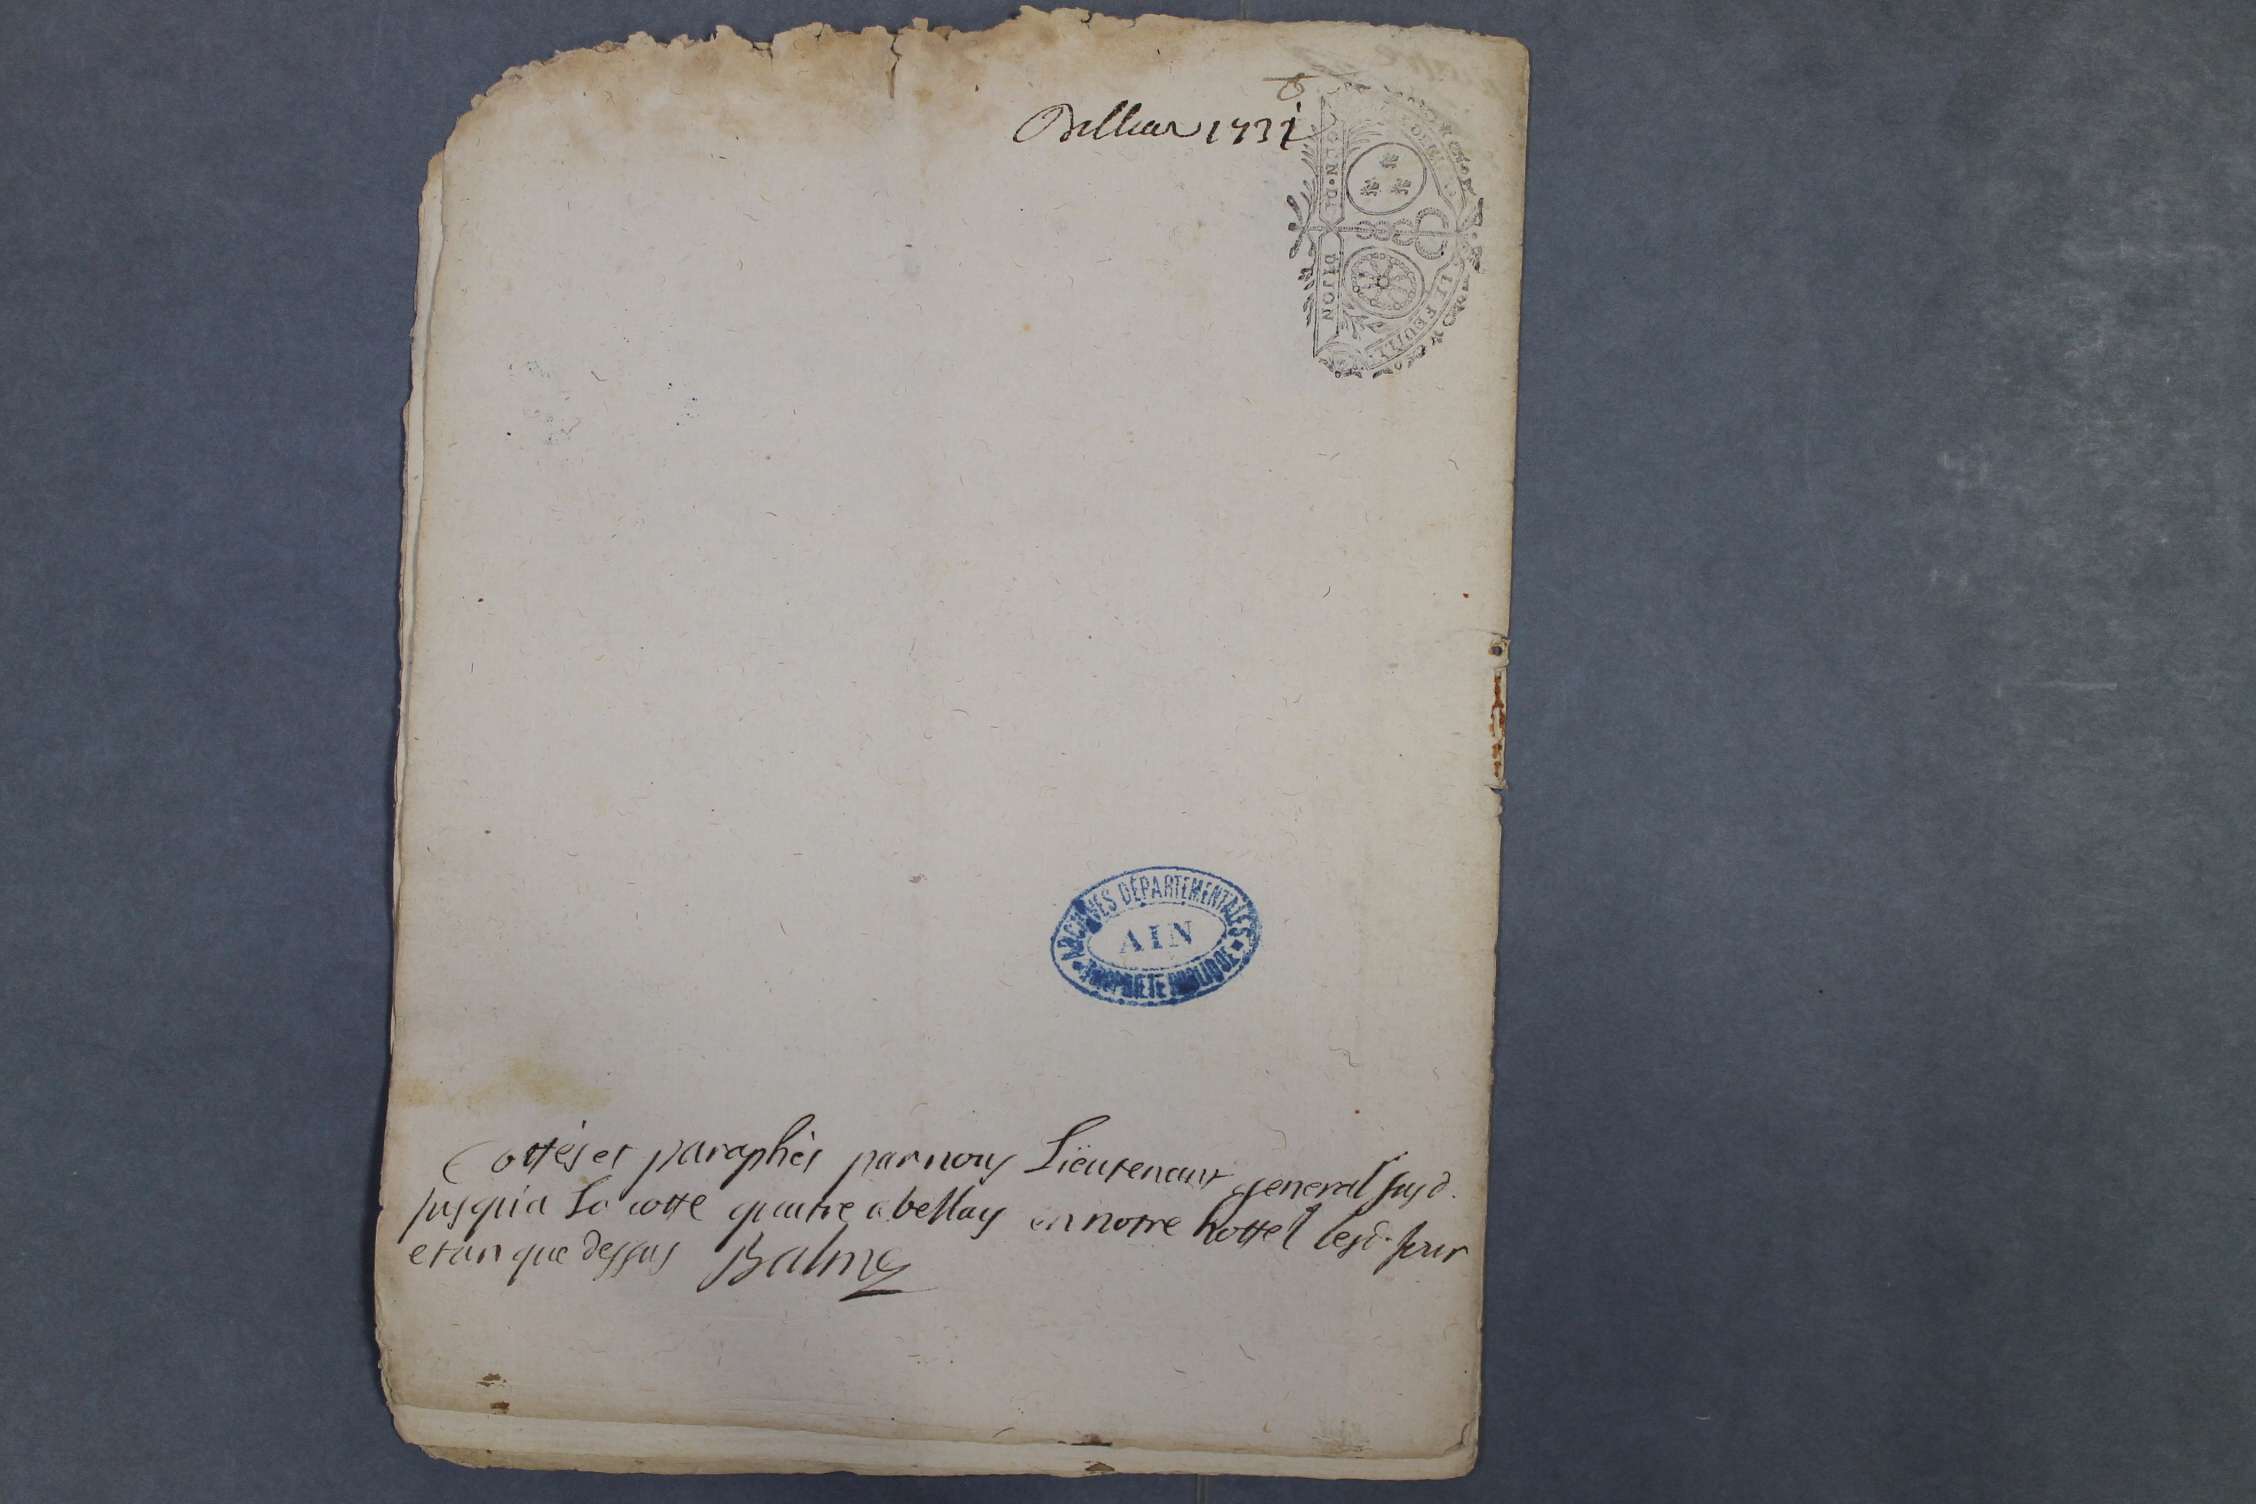 Billieu 1731
GEN. DE DIJON
LE FEUIL
ARCHIVES DÉPARTEMENTALES
AIN
PROPRIÉTÉ PUBLIQUE
Cottés et paraphés par nous Lieutenant general susd.
jusqu'a La cotte quatre a bellay en notre hottel lesd. jour
et an que dessus Balme